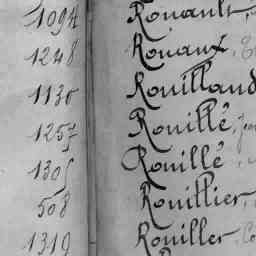 1094 Rouault,
1248 Rouaux,
1130 Rouilland
1257 Rouillé,
1305 Rouillé
508 Rouillier,
1319 Rouiller,